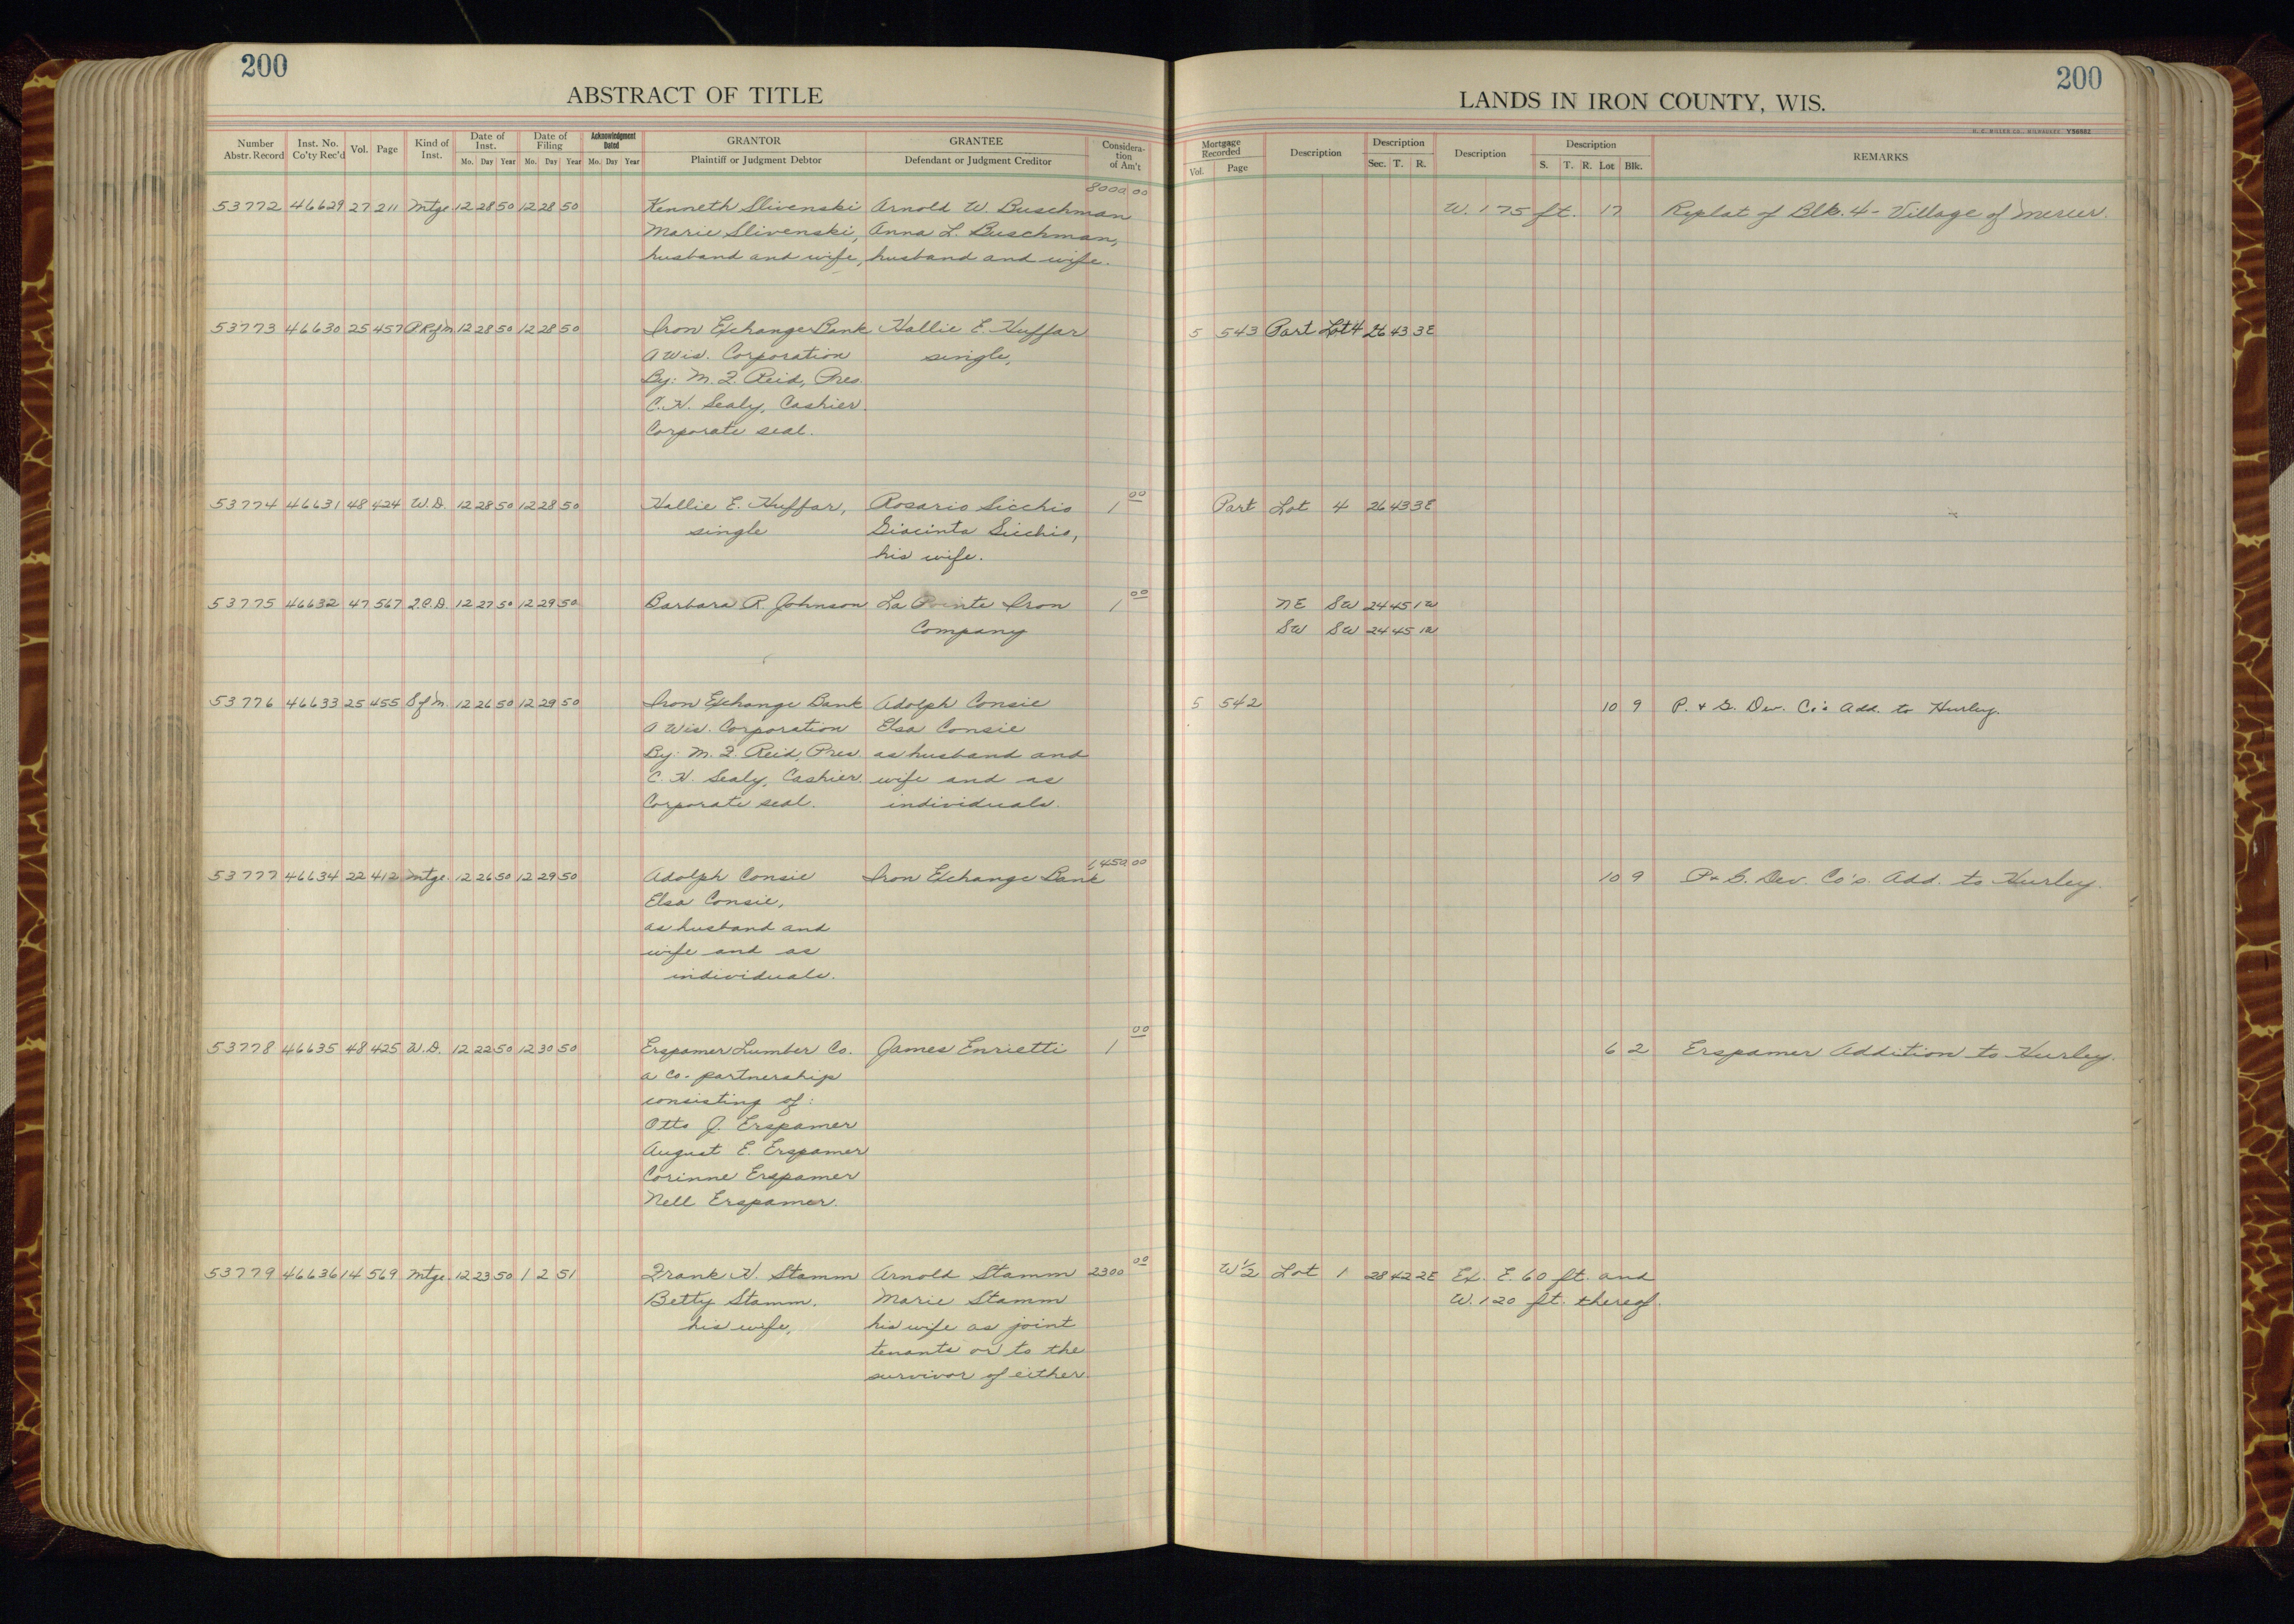 200
ABSTRACT OF TITLE
Number Abstr. Record
Inst. No. Co'ty Rec'd
Vol.
Page
Kind of Inst.
Date of Inst.
Mo. Day Year
Date of Filing
Mo. Day Year
Acknowledgment Dated
Mo. Day Year
GRANTOR
Plaintiff or Judgment Debtor
GRANTEE
Defendant or Judgment Creditor
Consideration of Am't
8000.00
53772 46629 27 211 Mtge 12 28 50 12 28 50 Kenneth Slivenski Arnold W. Buschman
Marie Slivenski, Anna L. Buschman,
husband and wife, husband and wife.
53773 46630 25 457 P R of M 12 28 50 12 28 50 Iron Exchange Bank Hallie E. Huffar
A Wis. Corporation single,
By: M. J. Reid, Pres.
C. H. Sealy, Cashier.
Corporate seal.
53774 46631 48 424 W.D. 12 28 50 12 28 50 Hallie E. Huffar, Rosario Sicchio 1 00
single Giacinta Sicchio,
his wife.
53775 46632 47 567 2.C.D. 12 27 50 12 29 50 Barbara R. Johnson La Pointe Iron 1 00
Company
53776 46633 25 455 S of M. 12 26 50 12 29 50 Iron Exchange Bank Adolph Consie
A Wis. Corporation Elsa Consie
By: M. J. Reid, Pres. as husband and
C. H. Sealy, Cashier. wife and as
Corporate seal. individuals.
1,450.00
53777 46634 22 412 Mtge. 12 26 50 12 29 50 Adolph Consie Iron Exchange Bank
Elsa Consie,
as husband and
wife and as
individuals.
53778 46635 48 425 W.D. 12 22 50 12 30 50 Erspamer Lumber Co. James Enrietti 1 00
a Co-partnership
consisting of:
Otto J. Erspamer
August E. Erspamer
Corinne Erspamer
Nell Erspamer.
53779 46636 14 569 Mtge. 12 23 50 1 2 51 Frank H. Stamm Arnold Stamm 2300 00
Betty Stamm, Marie Stamm
his wife, his wife as joint
tenants or to the
survivor of either.
200
LANDS IN IRON COUNTY, WIS.
H. C. MILLER CO., MILWAUKEE
Mortgage Recorded
Vol. Page
Description
Description
Sec. T. R.
Description
Description
S. T. R. Lot Blk.
REMARKS
W. 175 ft. 17 Replat of Blk. 4 - Village of Mercer.
5 543 Part Lot 4 26 43 3E
Part Lot 4 26 43 3E
NE SW 24 45 1W
SW SW 24 45 1W
5 542 10 9 P. & G. Dev. Co's Add. to Hurley.
10 9 P. & G. Dev. Co's. Add. to Hurley.
6 2 Erspamer Addition to Hurley.
W 1/2 Lot 1 28 42 2E Ex. E. 60 ft. and
W. 120 ft. thereof.